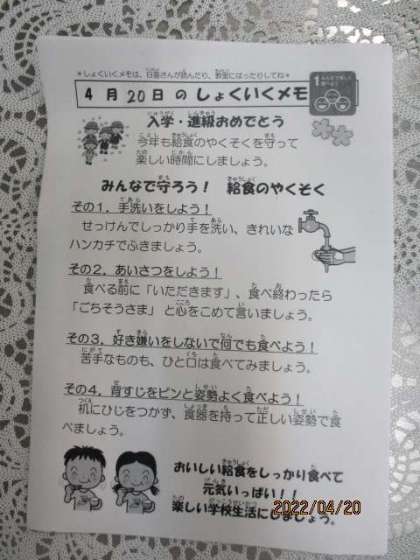 ＊しょくいくメモは、日直さんが読んだり、教室にはったりしてね＊
4月20日のしょくいくメモ
入学・進級おめでとう
今年も給食のやくそくを守って
楽しい時間にしましょう。
みんなで守ろう！ 給食のやくそく
その1．手洗いをしよう！
せっけんでしっかり手を洗い、きれいな
ハンカチでふきましょう。
その2．あいさつをしよう！
食べる前に「いただきます」、食べ終わったら
「ごちそうさま」と心をこめて言いましょう。
その3．好き嫌いをしないで何でも食べよう！
苦手なものも、ひと口は食べてみましょう。
その4．背すじをピンと姿勢よく食べよう！
机にひじをつかず、食器を持って正しい姿勢で食
べましょう。
おいしい給食をしっかり食べて
元気いっぱい！！
楽しい学校生活にしましょう。
2022/04/20